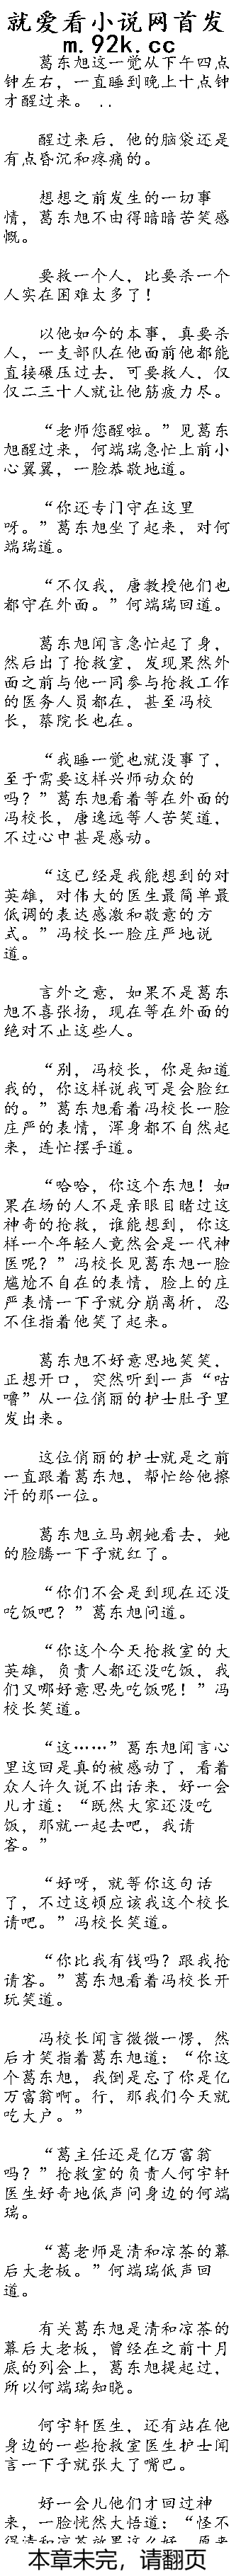 就爱看小说网首发
m.92k.cc
葛东旭这一觉从下午四点
钟左右，一直睡到晚上十点钟
才醒过来。 ..
醒过来后，他的脑袋还是
有点昏沉和疼痛的。
想想之前发生的一切事
情，葛东旭不由得暗暗苦笑感
慨。
要救一个人，比要杀一个
人实在困难太多了！
以他如今的本事，真要杀
人，一支部队在他面前他都能
直接碾压过去，可要救人，仅
仅二三十人就让他筋疲力尽。
“老师您醒啦。”见葛东
旭醒过来，何端瑞急忙上前小
心翼翼，一脸恭敬地道。
“你还专门守在这里
呀。”葛东旭坐了起来，对何
端瑞道。
“不仅我，唐教授他们也
都守在外面。”何端瑞回道。
葛东旭闻言急忙起了身，
然后出了抢救室，发现果然外
面之前与他一同参与抢救工作
的医务人员都在，甚至冯校
长，蔡院长也在。
“我睡一觉也就没事了，
至于需要这样兴师动众的
吗？”葛东旭看着等在外面的
冯校长，唐逸远等人苦笑道，
不过心中甚是感动。
“这已经是我能想到的对
英雄，对伟大的医生最简单最
低调的表达感激和敬意的方
式。”冯校长一脸庄严地说
道。
言外之意，如果不是葛东
旭不喜张扬，现在等在外面的
绝对不止这些人。
“别，冯校长，你是知道
我的，你这样说我可是会脸红
的。”葛东旭看着冯校长一脸
庄严的表情，浑身都不自然起
来，连忙摆手道。
“哈哈，你这个东旭！如
果在场的人不是亲眼目睹过这
神奇的抢救，谁能想到，你这
样一个年轻人竟然会是一代神
医呢？”冯校长见葛东旭一脸
尴尬不自在的表情，脸上的庄
严表情一下子就分崩离析，忍
不住指着他笑了起来。
葛东旭不好意思地笑笑，
正想开口，突然听到一声“咕
噜”从一位俏丽的护士肚子里
发出来。
这位俏丽的护士就是之前
一直跟着葛东旭，帮忙给他擦
汗的那一位。
葛东旭立马朝她看去，她
的脸腾一下子就红了。
“你们不会是到现在还没
吃饭吧？”葛东旭问道。
“你这个今天抢救室的大
英雄，负责人都还没吃饭，我
们又哪好意思先吃饭呢！”冯
校长笑道。
“这……”葛东旭闻言心
里这回是真的被感动了，看着
众人许久说不出话来，好一会
儿才道：“既然大家还没吃
饭，那就一起去吧，我请
客。”
“好呀，就等你这句话
了，不过这顿应该我这个校长
请吧。”冯校长笑道。
“你比我有钱吗？跟我抢
请客。”葛东旭看着冯校长开
玩笑道。
冯校长闻言微微一愣，然
后才笑指着葛东旭道：“你这
个葛东旭，我倒是忘了你是亿
万富翁啊。行，那我们今天就
吃大户。”
“葛主任还是亿万富翁
吗？”抢救室的负责人何宇轩
医生好奇地低声问身边的何端
瑞。
“葛老师是清和凉茶的幕
后大老板。”何端瑞低声回
道。
有关葛东旭是清和凉茶的
幕后大老板，曾经在之前十月
底的列会上，葛东旭提起过，
所以何端瑞知晓。
何宇轩医生，还有站在他
身边的一些抢救室医生护士闻
言一下子就张大了嘴巴。
好一会儿他们才回过神
来，一脸恍然大悟道：“怪不
得清和凉茶效果这么好，原来
本章未完，请翻页